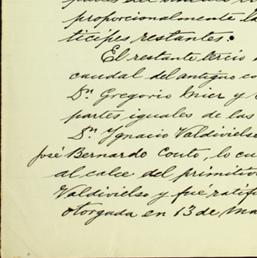 proporcionalmente la
ticipes restantes.
El restante tercio
caudal del antiguo co
Dn. Gregorio Mier y
partes iguales de las
Dn. Ygnacio Valdivielso
José Bernardo Couto, lo cu
al calce del primitivo
Valdivielso y fué ratifi
otorgada en 13 de Ma